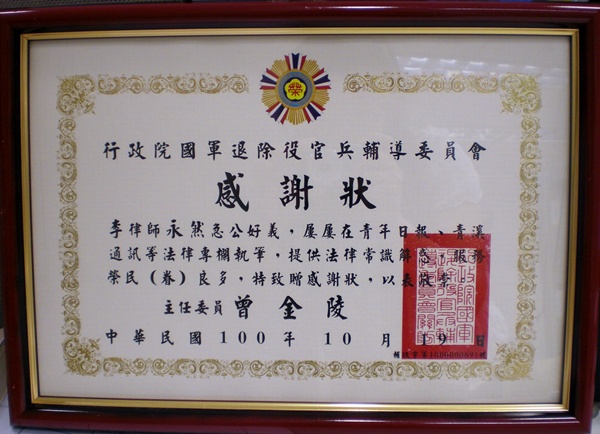 榮
行政院國軍退除役官兵輔導委員會
感謝狀
李律師永然急公好義，屢屢在青年日報、青溪
通訊等法律專欄執筆，提供法律常識解惑，服務
榮民(眷)良多，特致贈感謝狀，以表敬意。
主任委員 曾金陵
中華民國100年10月19日